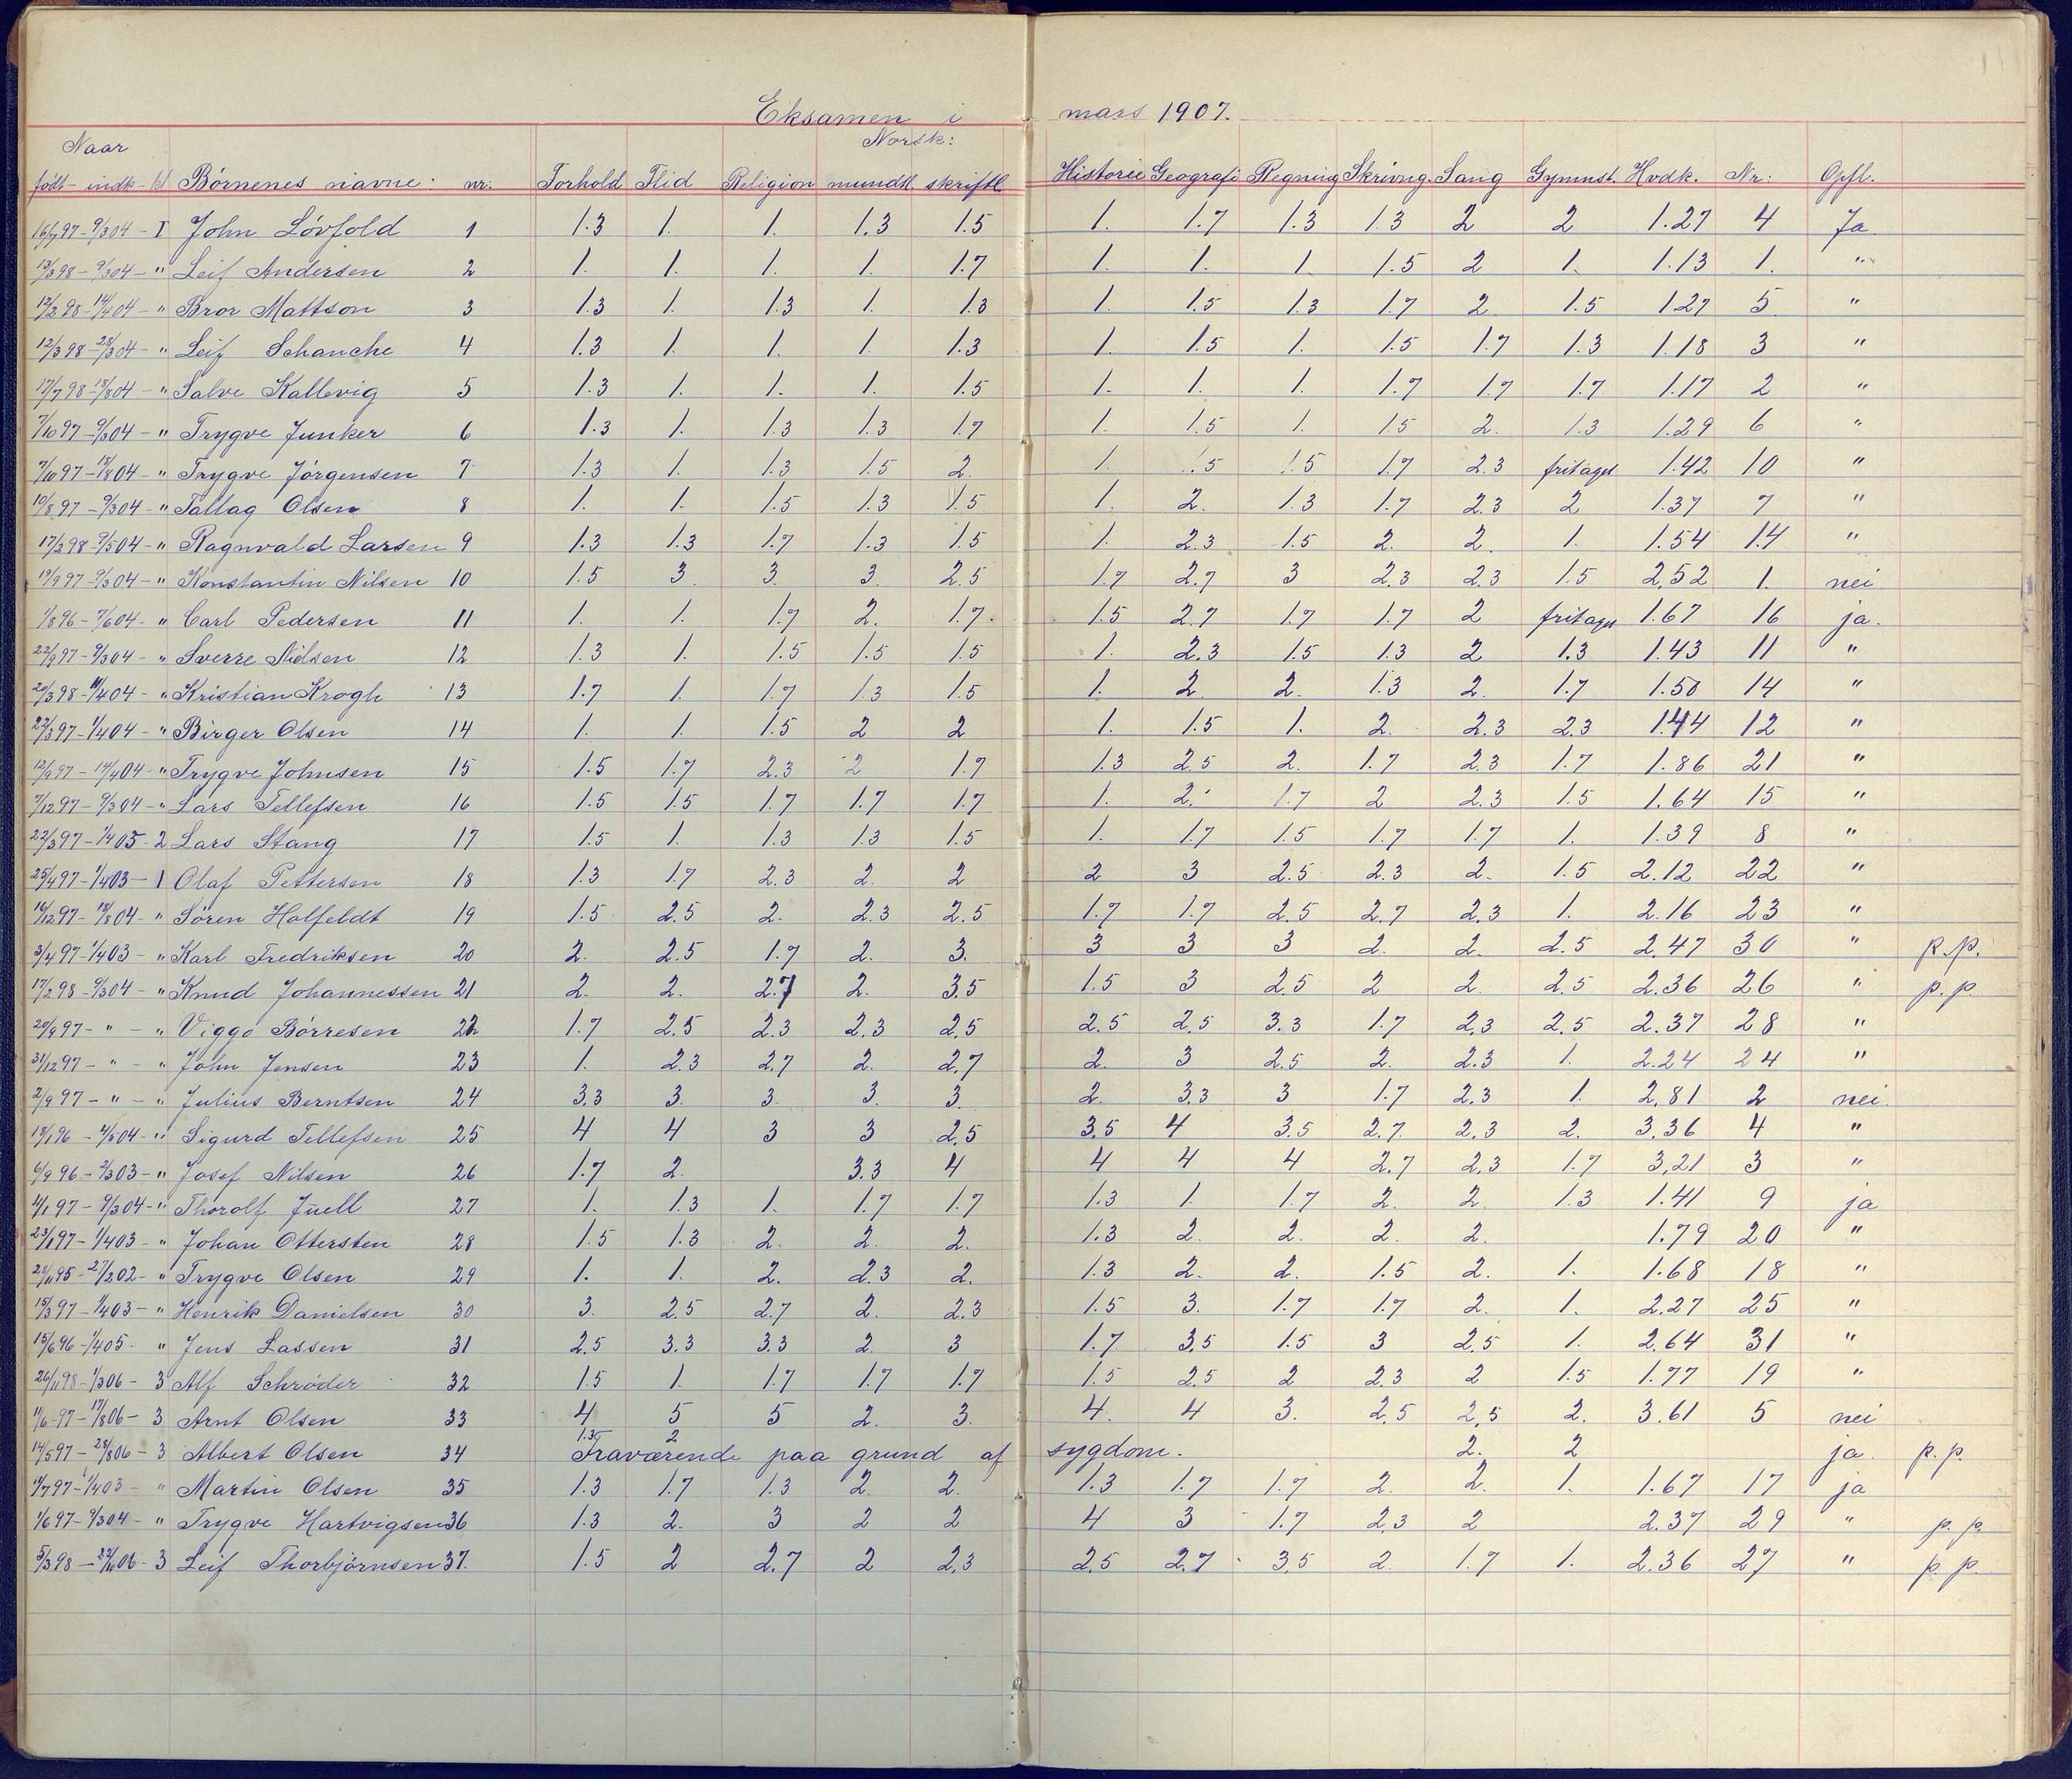 Eksamen i mars 1907.
Naar Norsk:
født - indk - kl Børnenes navne nr: Forhold Flid Religion mundtl. skriftl. Historie Geografi Regning Skrivng. Sang Gymnst. Hvdk. Nr: Opfl.
16/7 97 - 9/3 04 - I John Lövfold 1 1.3 1. 1. 1.3 1.5 1. 1.7 1.3 1.3 2 2 1.27 4 Ja
13/3 98 - 9/3 04 - " Leif Andersen 2 1. 1. 1. 1. 1.7 1. 1. 1. 1.5 2 1. 1.13 1. "
12/2 98 - 14/4 04 - " Bror Mattson 3 1.3 1. 1.3 1. 1.3 1. 1.5 1.3 1.7 2 1.5 1.27 5 "
12/3 98 - 28/3 04 - " Leif Schanche 4 1.3 1. 1. 1. 1.3 1. 1.5 1. 1.5 1.7 1.3 1.18 3 "
17/7 98 - 18/8 04 - " Salve Kallevig 5 1.3 1. 1. 1. 1.5 1. 1. 1. 1.7 1.7 1.7 1.17 2 "
7/10 97 - 9/3 04 - " Trygve Junker 6 1.3 1. 1.3 1.3 1.7 1. 1.5 1. 1.5 2. 1.3 1.29 6 "
7/10 97 - 18/8 04 - " Trygve Jörgensen 7 1.3 1. 1.3 1.5 2. 1. 1.5 1.5 1.7 2.3 fritaget 1.42 10 "
10/8 97 - 9/3 04 - " Tallag Olsen 8 1. 1. 1.5 1.3 1.5 1. 2. 1.3 1.7 2.3 2 1.37 7 "
17/2 98 - 9/5 04 - " Ragnvald Larsen 9 1.3 1.3 1.7 1.3 1.5 1. 2.3 1.5 2. 2. 1. 1.54 14 "
19/9 97 - 9/3 04 - " Konstantin Nilsen 10 1.5 3. 3. 3. 2.5 1.7 2.7 3 2.3 2.3 1.5 2,52 1. nei
1/8 96 - 7/6 04 - " Carl Pedersen 11 1. 1. 1.7 2. 1.7. 1.5 2.7 1.7 1.7 2 fritaget 1.67 16 ja.
22/9 97 - 9/3 04 - " Sverre Nielsen 12 1.3 1. 1.5 1.5 1.5 1. 2.3 1.5 1.3 2 1.3 1.43 11 "
20/3 98 - 11/4 04 - " Kristian Krogh 13 1.7 1. 1.7 1.3 1.5 1. 2. 2. 1.3 2. 1.7 1.50 14 "
22/3 97 - 1/4 04 - " Birger Olsen 14 1. 1. 1.5 2 2 1. 1.5 1. 2. 2.3 2.3 1.44 12 "
12/9 97 - 14/4 04 - " Trygve Johnsen 15 1.5 1.7 2.3 2 1.7 1.3 2.5 2. 1.7 2.3 1.7 1.86 21 "
7/12 97 - 9/3 04 - " Lars Tellefsen 16 1.5 1.5 1.7 1.7 1.7 1. 2. 1.7 2 2.3 1.5 1.64 15 "
22/3 97 - 1/4 05 - 2 Lars Stang 17 1.5 1. 1.3 1.3 1.5 1. 1.7 1.5 1.7 1.7 1. 1.39 8 "
25/4 97 - 1/4 03 - 1 Olaf Pettersen 18 1.3 1.7 2.3 2. 2 2 3 2.5 2.3 2. 1.5 2.12 22 "
16/12 97 - 18/8 04 - " Sören Holfeldt 19 1.5 2.5 2. 2.3 2.5 1.7 1.7 2.5 2.7 2.3 1. 2.16 23 "
3/4 97 - 1/4 03 - " Karl Fredriksen 20 2. 2.5 1.7 2. 3. 3 3 3 2. 2. 2.5 2.47 30 " p.p.
17/2 98 - 9/3 04 - " Knud Johannessen 21 2. 2. 2.7 2. 3.5 1.5 3 2.5 2 2. 2.5 2.36 26 " p.p.
20/9 97 - " - " Viggo Börresen 22 1.7 2.5 2.3 2.3 2.5 2.5 2.5 3.3 1.7 2.3 2.5 2.37 28 "
31/12 97 - " - " John Jensen 23 1. 2.3 2.7 2. 2.7 2. 3 2.5 2. 2.3 1. 2.24 24 "
2/9 97 - " - " Julius Berntsen 24 3.3 3. 3. 3. 3. 2. 3.3 3 1.7 2.3 1. 2,81 2 nei.
13/1 96 - 4/5 04 - " Sigurd Tellefsen 25 4 4 3 3 2.5 3.5 4 3.5 2.7. 2.3 2. 3.36 4 "
6/9 96 - 2/3 03 - " Josef Nilsen 26 1.7 2. 3.3 4 4 4 4 2.7 2.3 1.7 3,21 3 "
4/1 97 - 9/3 04 - " Thorolf Juell 27 1. 1.3 1. 1.7 1.7 1.3 1. 1.7 2. 2. 1.3 1.41 9 ja
23/1 97 - 1/4 03 - " Johan Ottersten 28 1.5 1.3 2. 2. 2. 1.3 2. 2. 2. 2. 1.79 20 "
28/11 95 - 27/2 02 - " Trygve Olsen 29 1. 1. 2. 2.3 2. 1.3 2. 2. 1.5 2. 1. 1.68 18 "
15/3 97 - 1/4 03 - " Henrik Danielsen 30 3. 2.5 2.7 2. 2.3 1.5 3. 1.7 1.7 2. 1. 2.27 25 "
15/6 96 - 1/4 05 - " Jens Lassen 31 2.5 3.3 3.3 2. 3 1.7 3.5 1.5 3 2.5 1. 2.64 31 "
26/11 98 - 1/3 06 - 3 Alf Schröder 32 1.5 1. 1.7 1.7 1.7 1.5 2.5 2 2.3 2 1.5 1.77 19 "
11/6 97 - 17/8 06 - 3 Arnt Olsen 33 4 5 5 2. 3. 4. 4 3. 2.5 2.5 2. 3.61 5 nei
14/5 97 - 28/8 06 - 3 Albert Olsen 34 1.3 2 Fraværende paa grund af sygdom. 2. 2 ja p.p.
11/7 97 - 1/4 03 - " Martin Olsen 35 1.3 1.7 1.3 2. 2. 1.3 1.7 1.7 2. 2. 1. 1.67 17 ja
1/6 97 - 9/3 04 - " Trygve Hartvigsen 36 1.3 2. 3 2 2 4 3 1.7 2.3 2 2.37 29 " p.p.
5/3 98 - 22/10 06 - 3 Leif Thorbjörnsen 37. 1.5 2 2.7 2 2.3 2.5 2.7 3.5 2. 1.7 1. 2.36 27 " p.p.